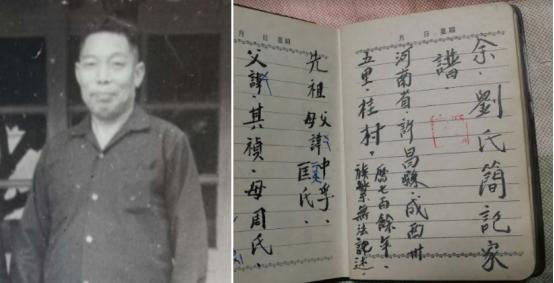 月 日 星期
余．劉氏簡記家
譜．
河南省許昌縣．成西卅
五里．桂村．
歷七百餘年．
族繁無法記述．
月 日 星期
先祖
父諱中孚．
母諱匡氏．
父諱．其禎．母周氏．